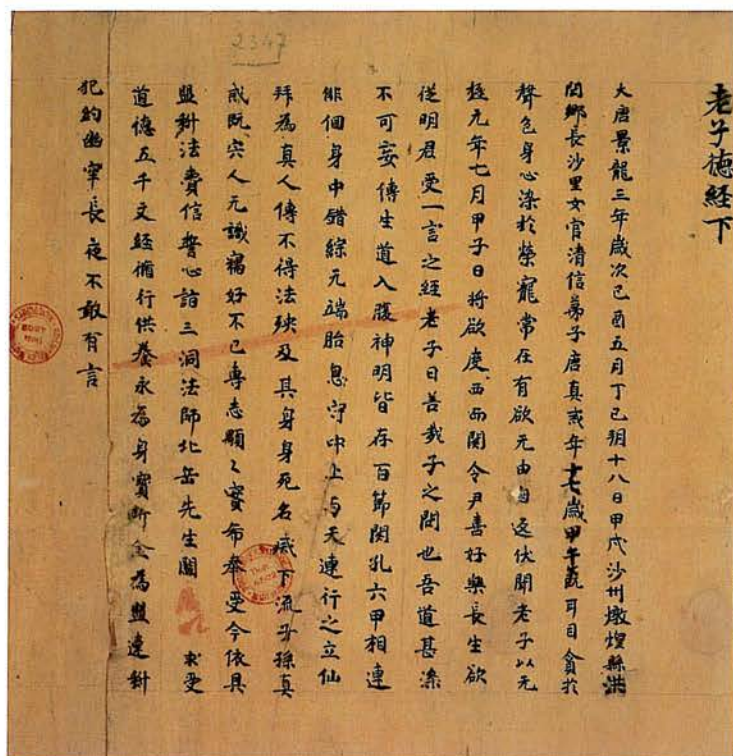 2347
老子德経下
大唐景龍三年歲次己酉五月丁巳朔十八日甲戌沙州燉煌縣洪
閏鄉長沙里女官清信弟子唐真戒年十七歲甲午耳目貪於
聲色身心染於榮寵常在有欲无由自返伏聞老子以无
極元年七月甲子日将欲度西而關令尹喜好樂長生欲
從明君受一言之經老子曰善哉子之問也吾道甚深
不可妄傳生道入腹神明皆存百節關孔六甲相連
徘徊身中錯綜无端胎息守中上与天連行之立仙
拜為真人傳不得法殃及其身身死名滅下流子孫真
戒既宍人无識竊好不已專志顒々實希奉受今依具
盟科法賷信誓心詣三洞法師北岳先生閻 求受
道德五千文經脩行供養永為身寶断金為盟違科
犯約幽牢長夜不敢有言